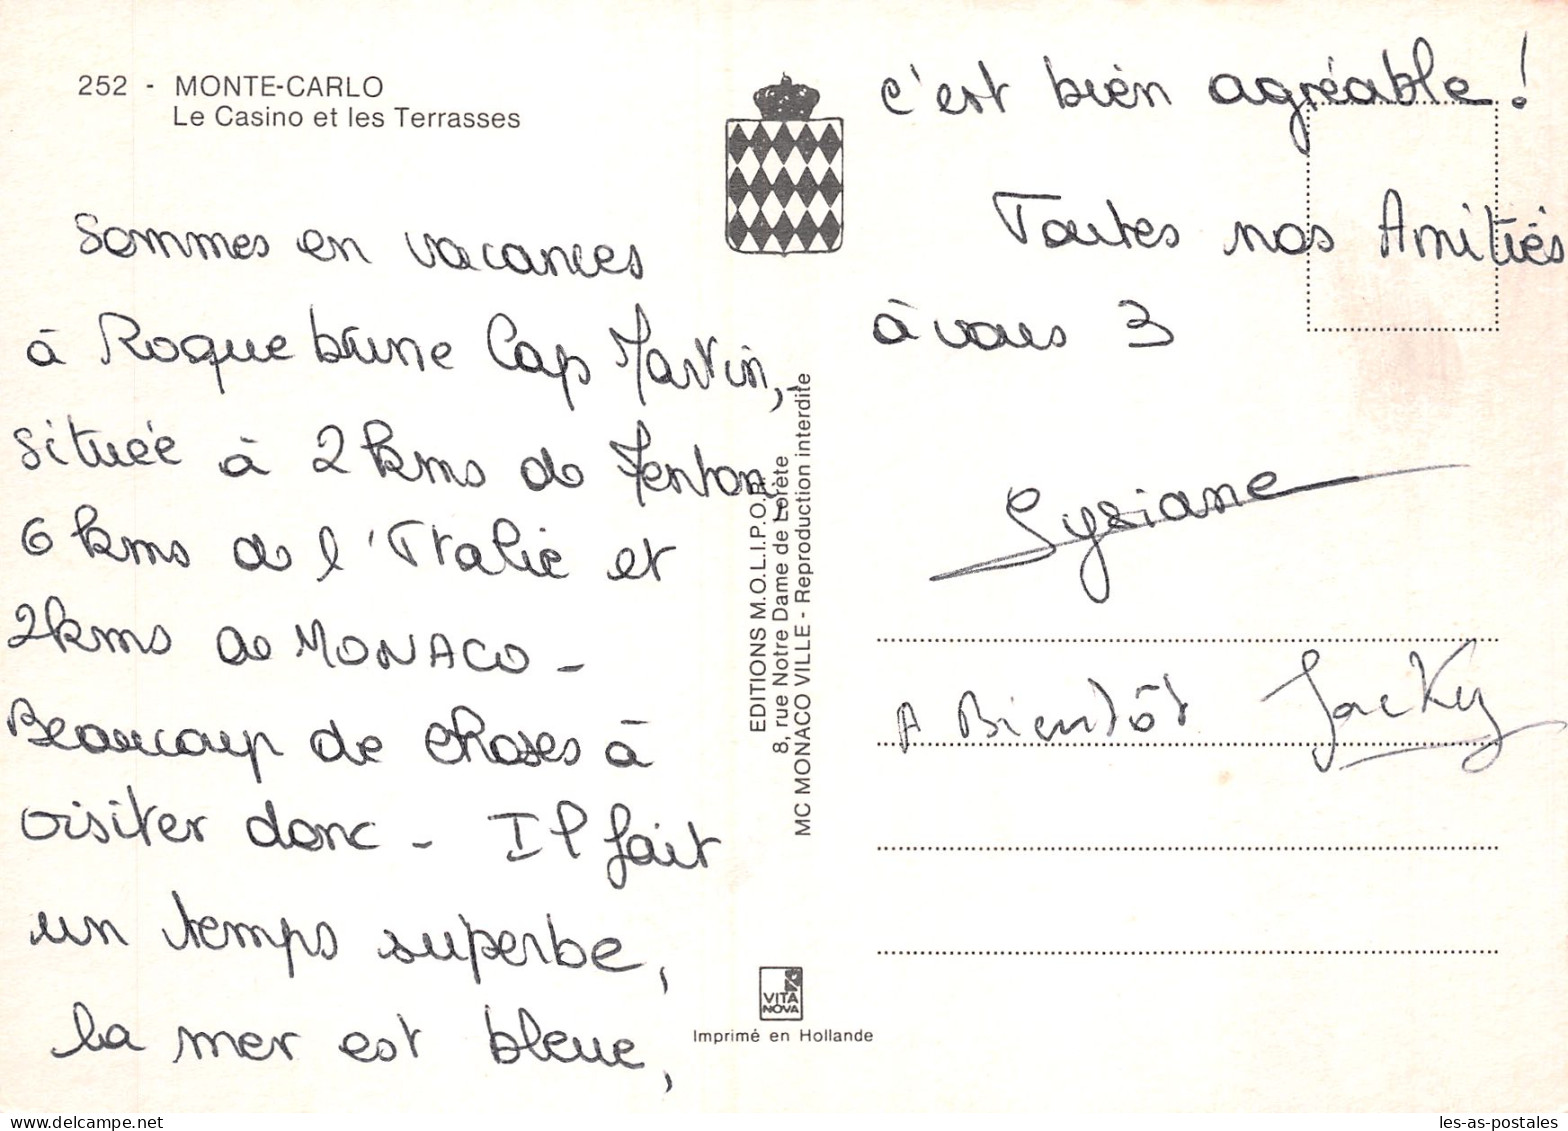 252 - MONTE-CARLO
Le Casino et les Terrasses
Sommes en vacances
à Roquebrune Cap Martin,
située à 2 kms de Menton,
6 kms de l'Italie et
2 kms de MONACO -
Beaucoup de choses à
visiter donc - Il fait
un temps superbe,
la mer est bleue,
c'est bien agréable !
Toutes nos Amitiés
à vous 3
Lysiane
A Bientôt Jacky
EDITIONS M.O.L.I.P.O.R.
8, rue Notre Dame de Lorète
MC MONACO VILLE - Reproduction interdite
VITA
NOVA
Imprimé en Hollande
les-as-postales